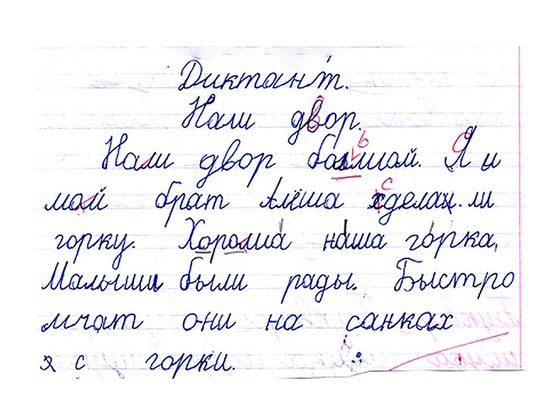 Диктант.
Наш двор.
Наш двор большой. Я и
мой брат Алёша сделали
горку. Хороша наша горка.
Малыши были рады. Быстро
мчат они на санках
с горки.